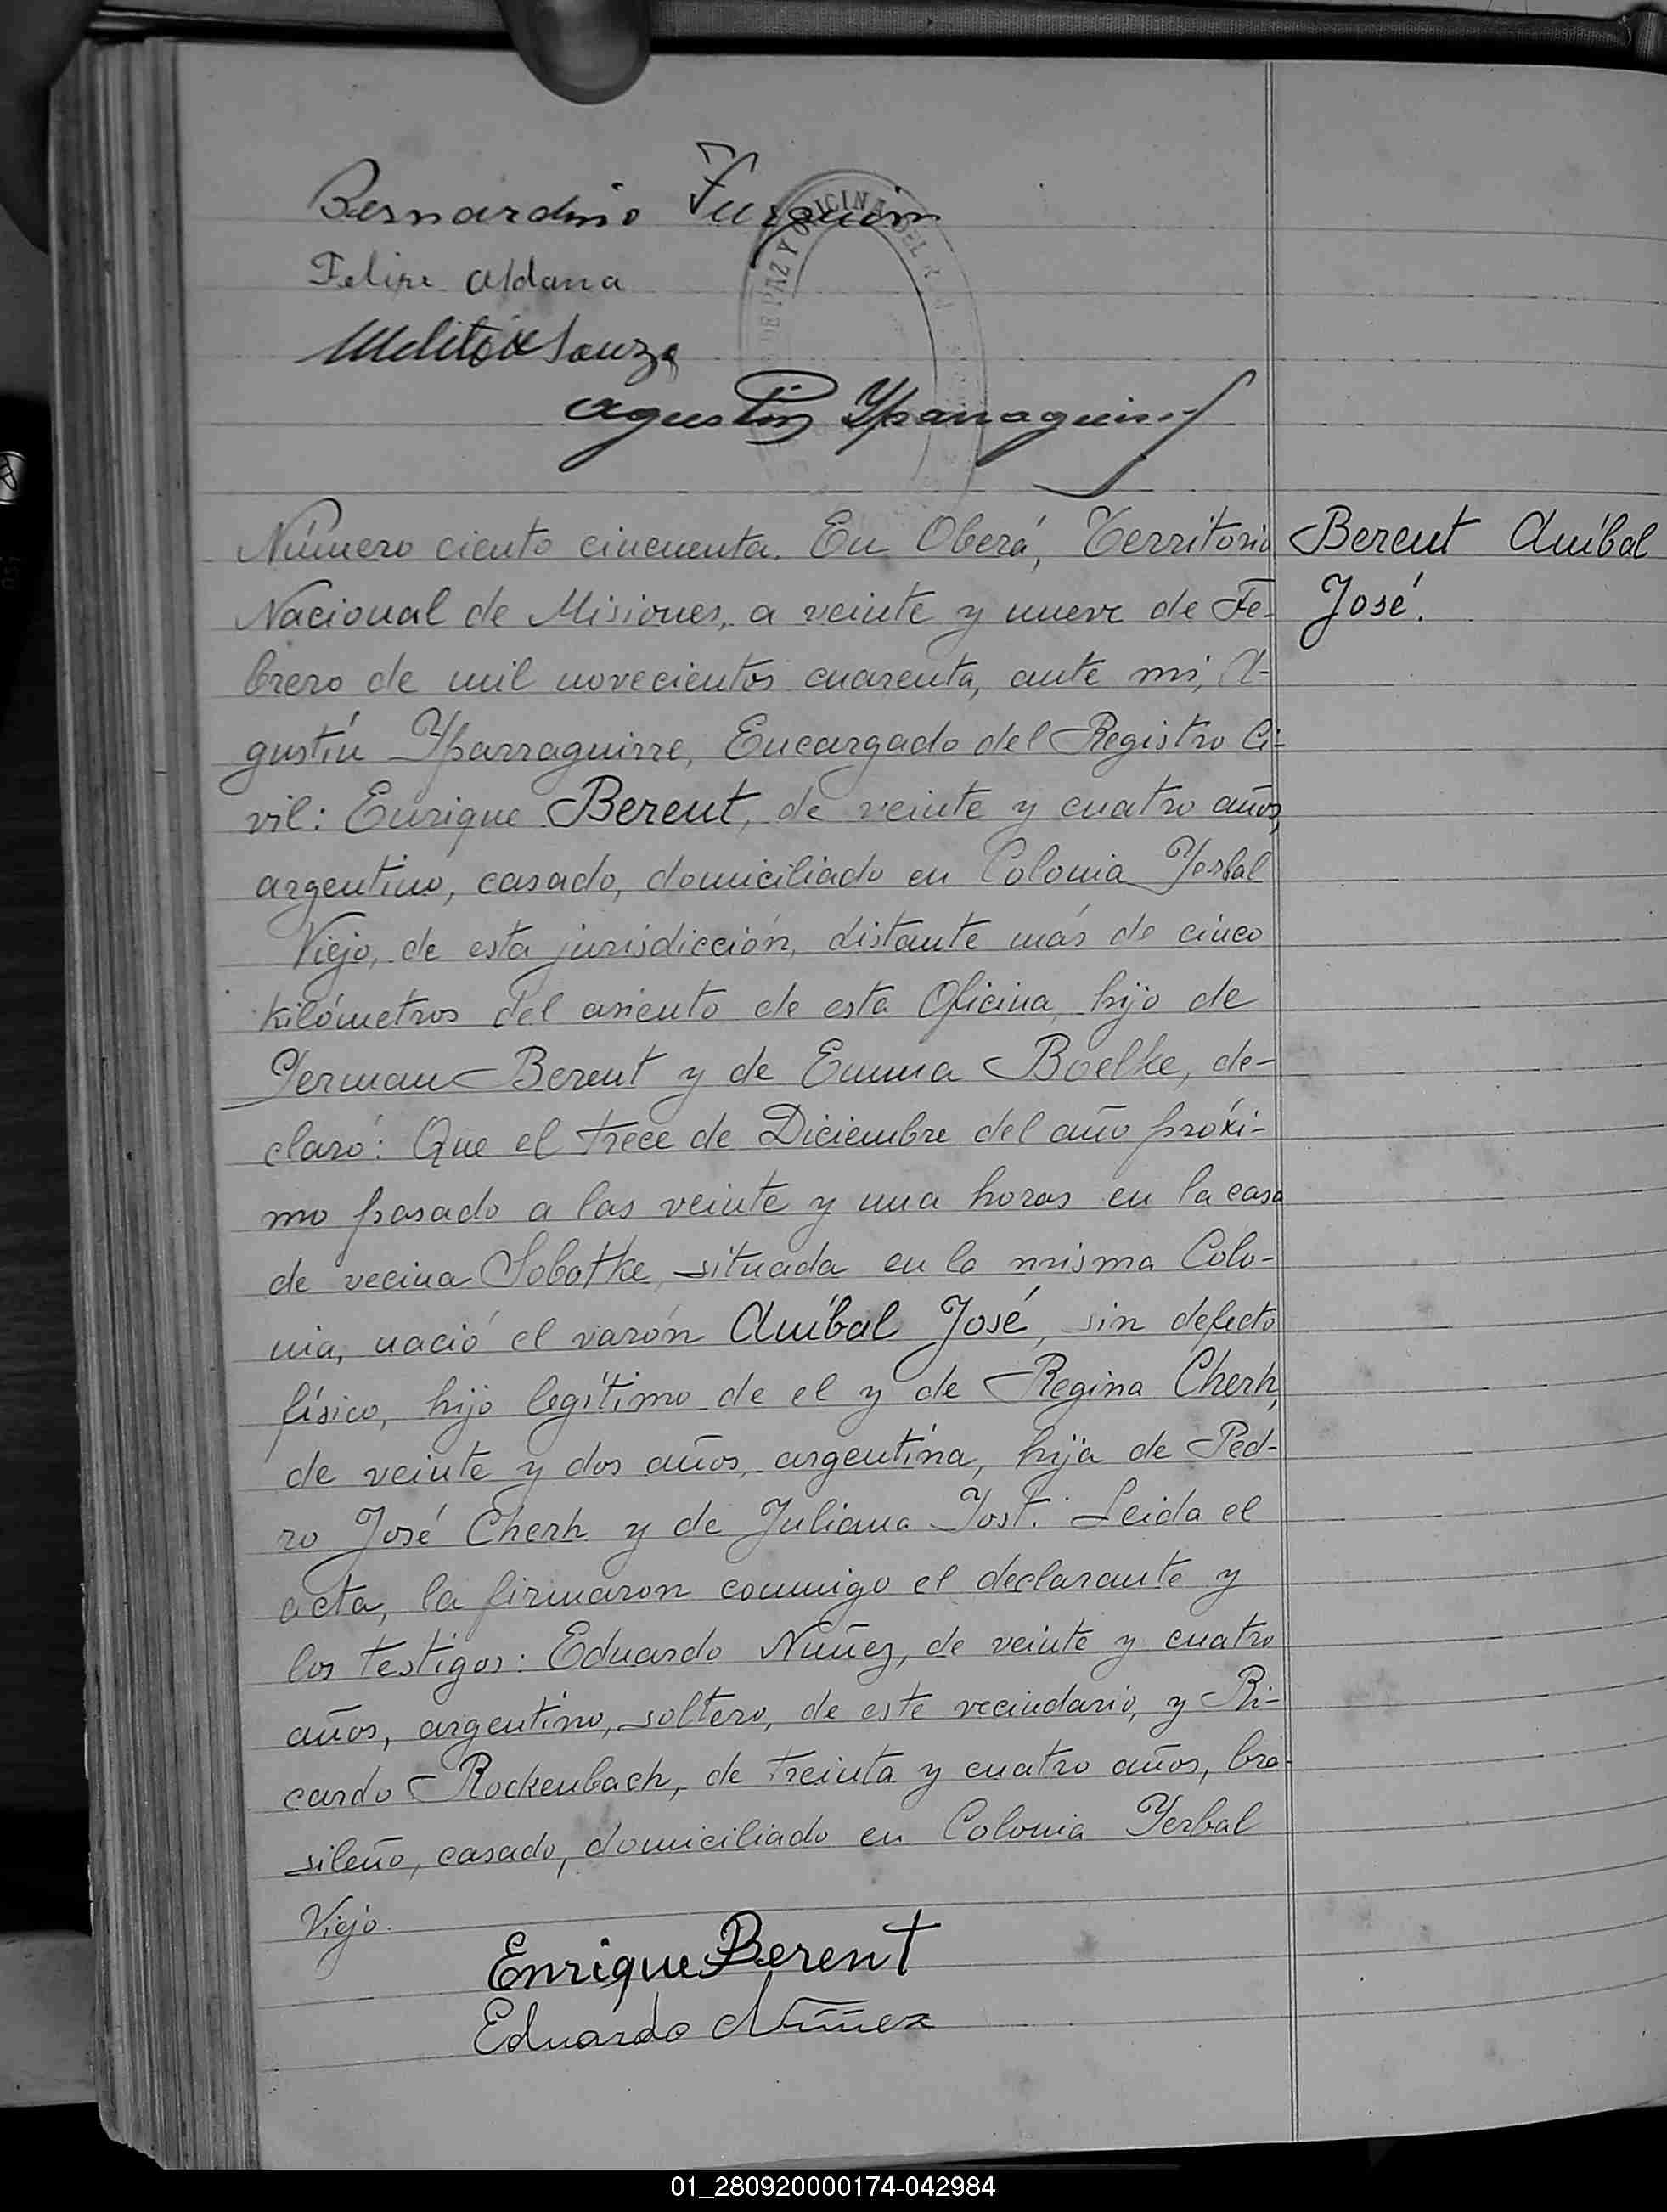 Bernardino
Felipe Aldana
Souza
Agustín Yparraguirre
OFICINA DEL
DE PAZ Y
Número ciento cincuenta. En Oberá, Territorio
Nacional de Misiones, a veinte y nueve de Fe-
brero de mil novecientos cuarenta, ante mi, A-
gustín Yparraguirre, Encargado del Registro Ci-
vil: Enrique Berent, de veinte y cuatro años,
argentino, casado, domiciliado en Colonia Yerbal
Viejo, de esta jurisdicción, distante más de cinco
kilómetros del asiento de esta Oficina, hijo de
German Berent y de Emma Boelke, de-
claró: Que el trece de Diciembre del año próxi-
mo pasado a las veinte y una horas en la casa
de vecina Sobotke, situada en la misma Colo-
nia, nació el varón Aníbal José, sin defecto
físico, hijo legítimo de el y de Regina Cherh,
de veinte y dos años, argentina, hija de Ped-
ro José Cherh y de Juliana Yost. Leida el
acta, la firmaron conmigo el declarante y
los testigos: Eduardo Nuñez, de veinte y cuatro
años, argentino, soltero, de este vecindario, y Ri-
cardo Rockenbach, de treinta y cuatro años, bra-
sileño, casado, domiciliado en Colonia Yerbal
Viejo.
Enrique Berent
Eduardo Núñez
Berent Aníbal
José.
01_280920000174-042984